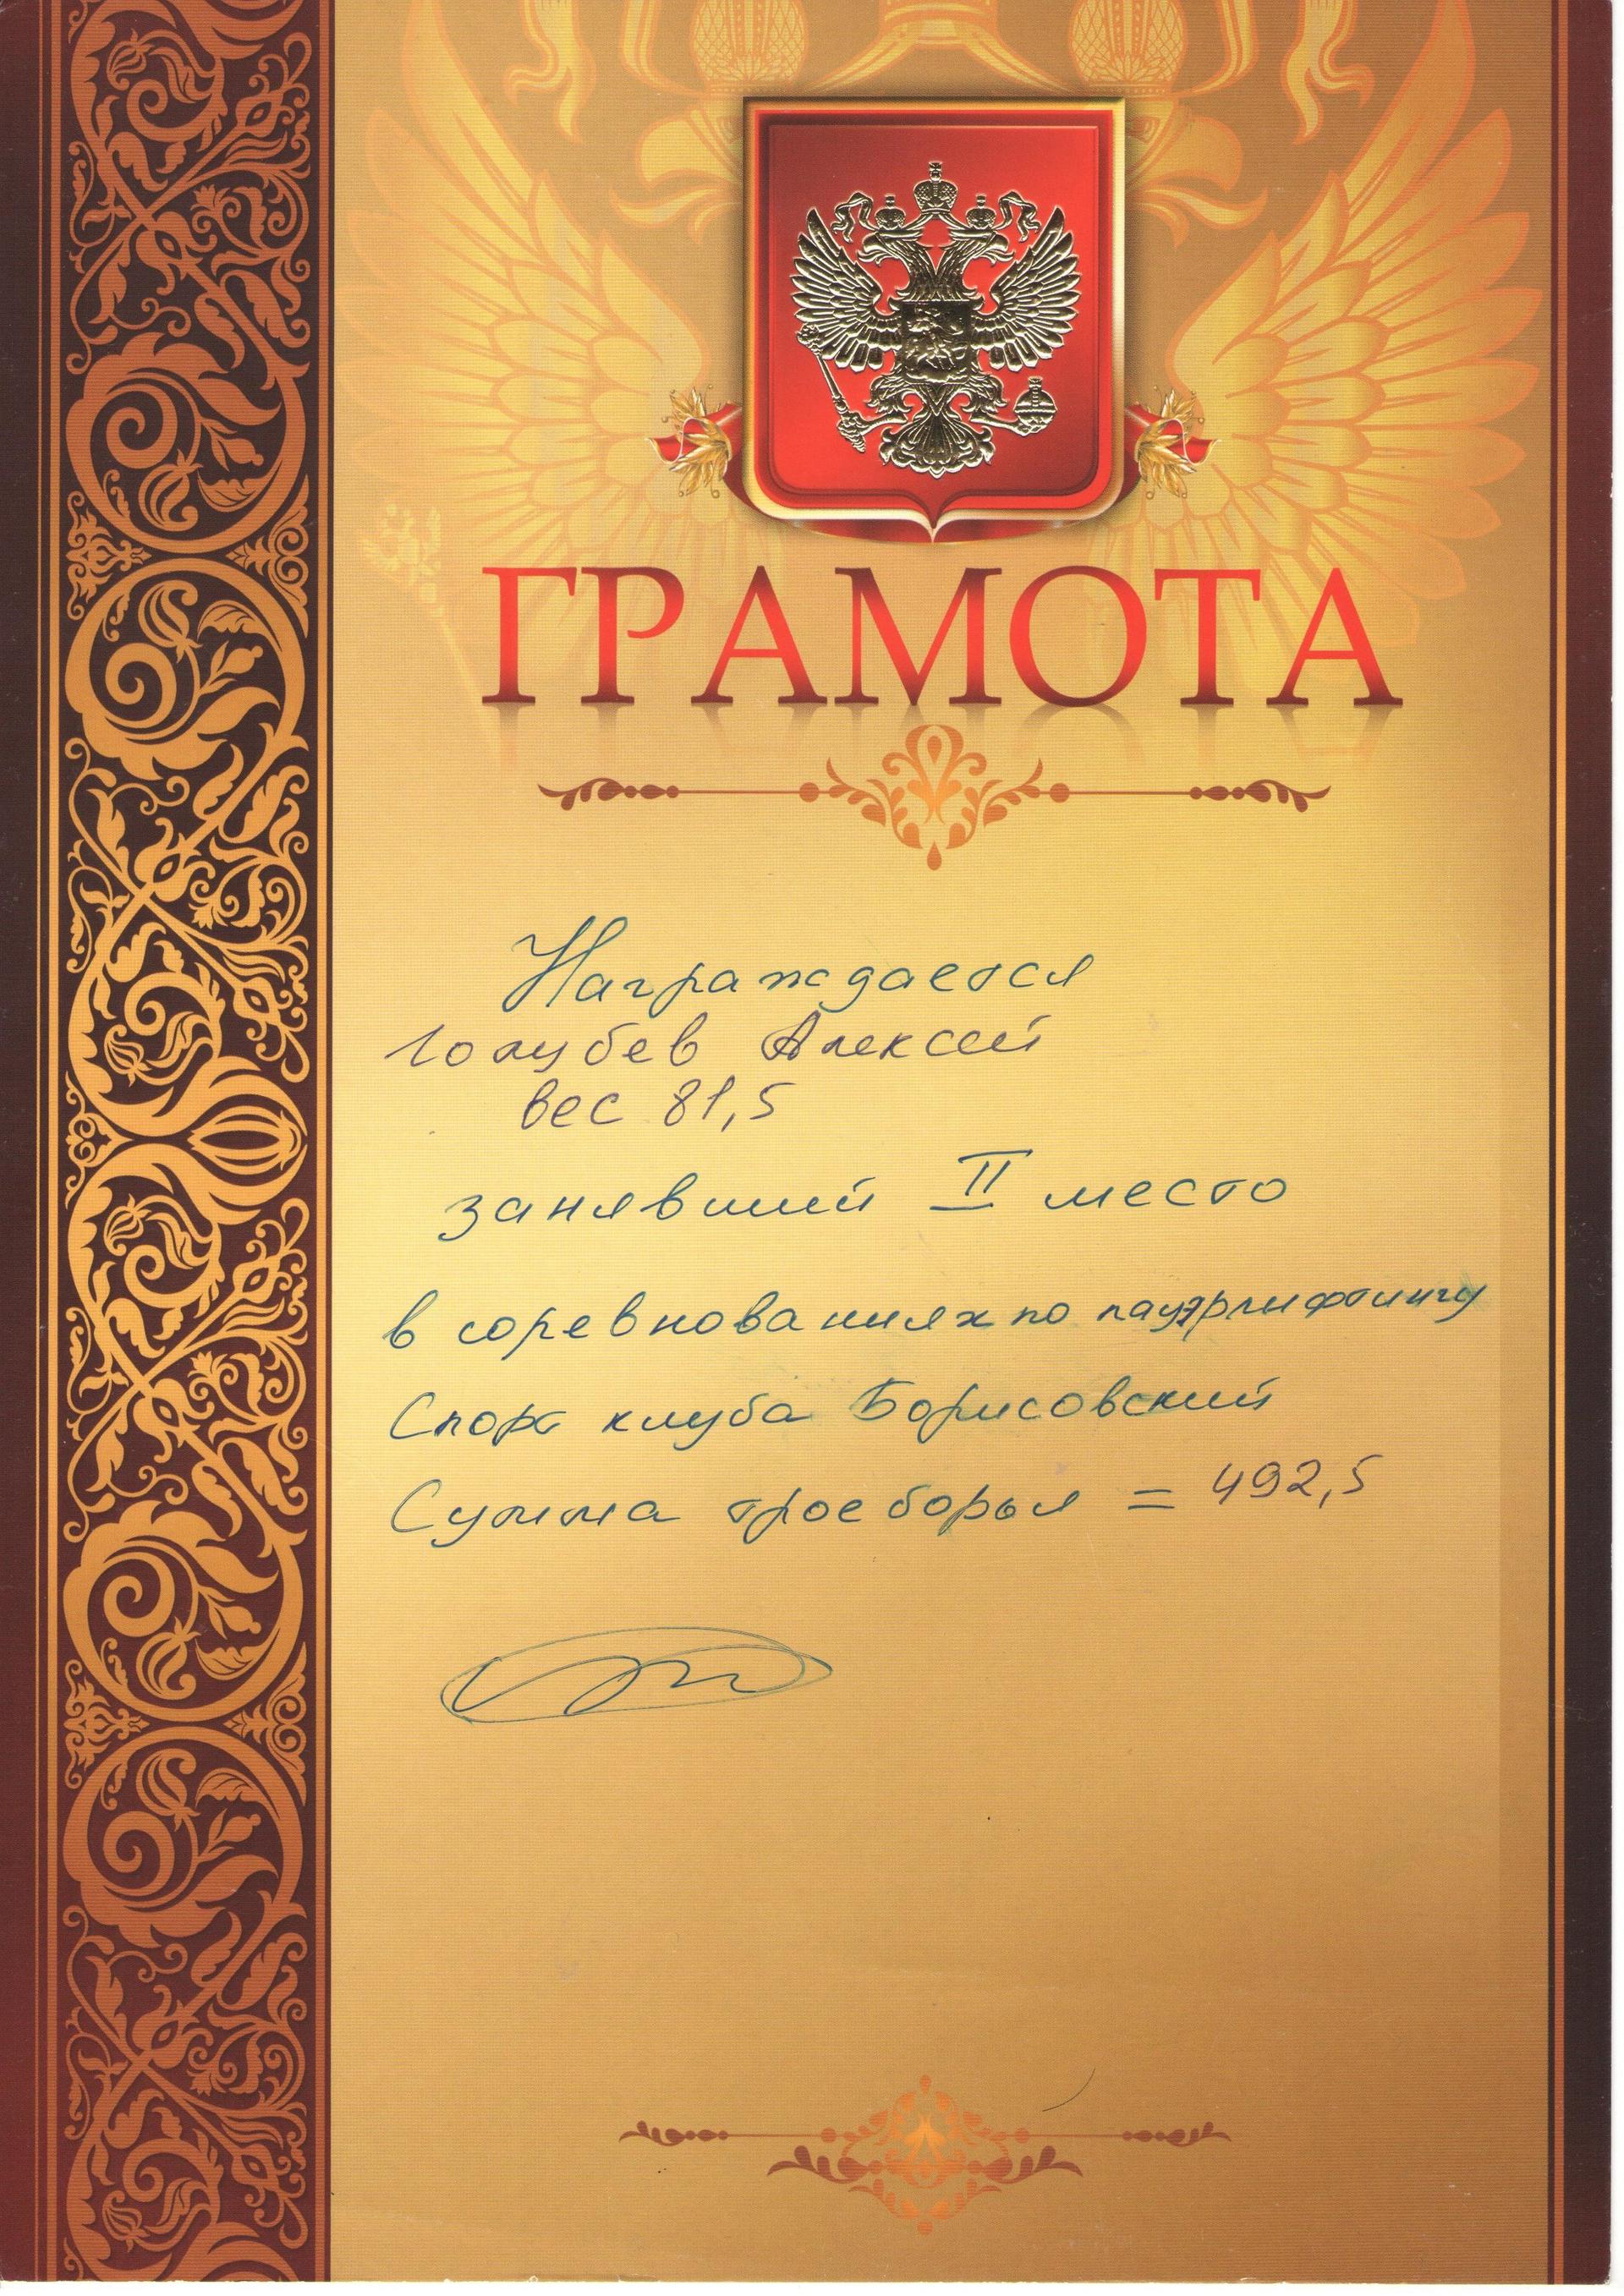 ГРАМОТА
Награждается
Голубев Алексей
вес 81,5
занявший II место
в соревнованиях по пауэрлифтингу
Спорт клуба Борисовский
Сумма троеборья = 492,5